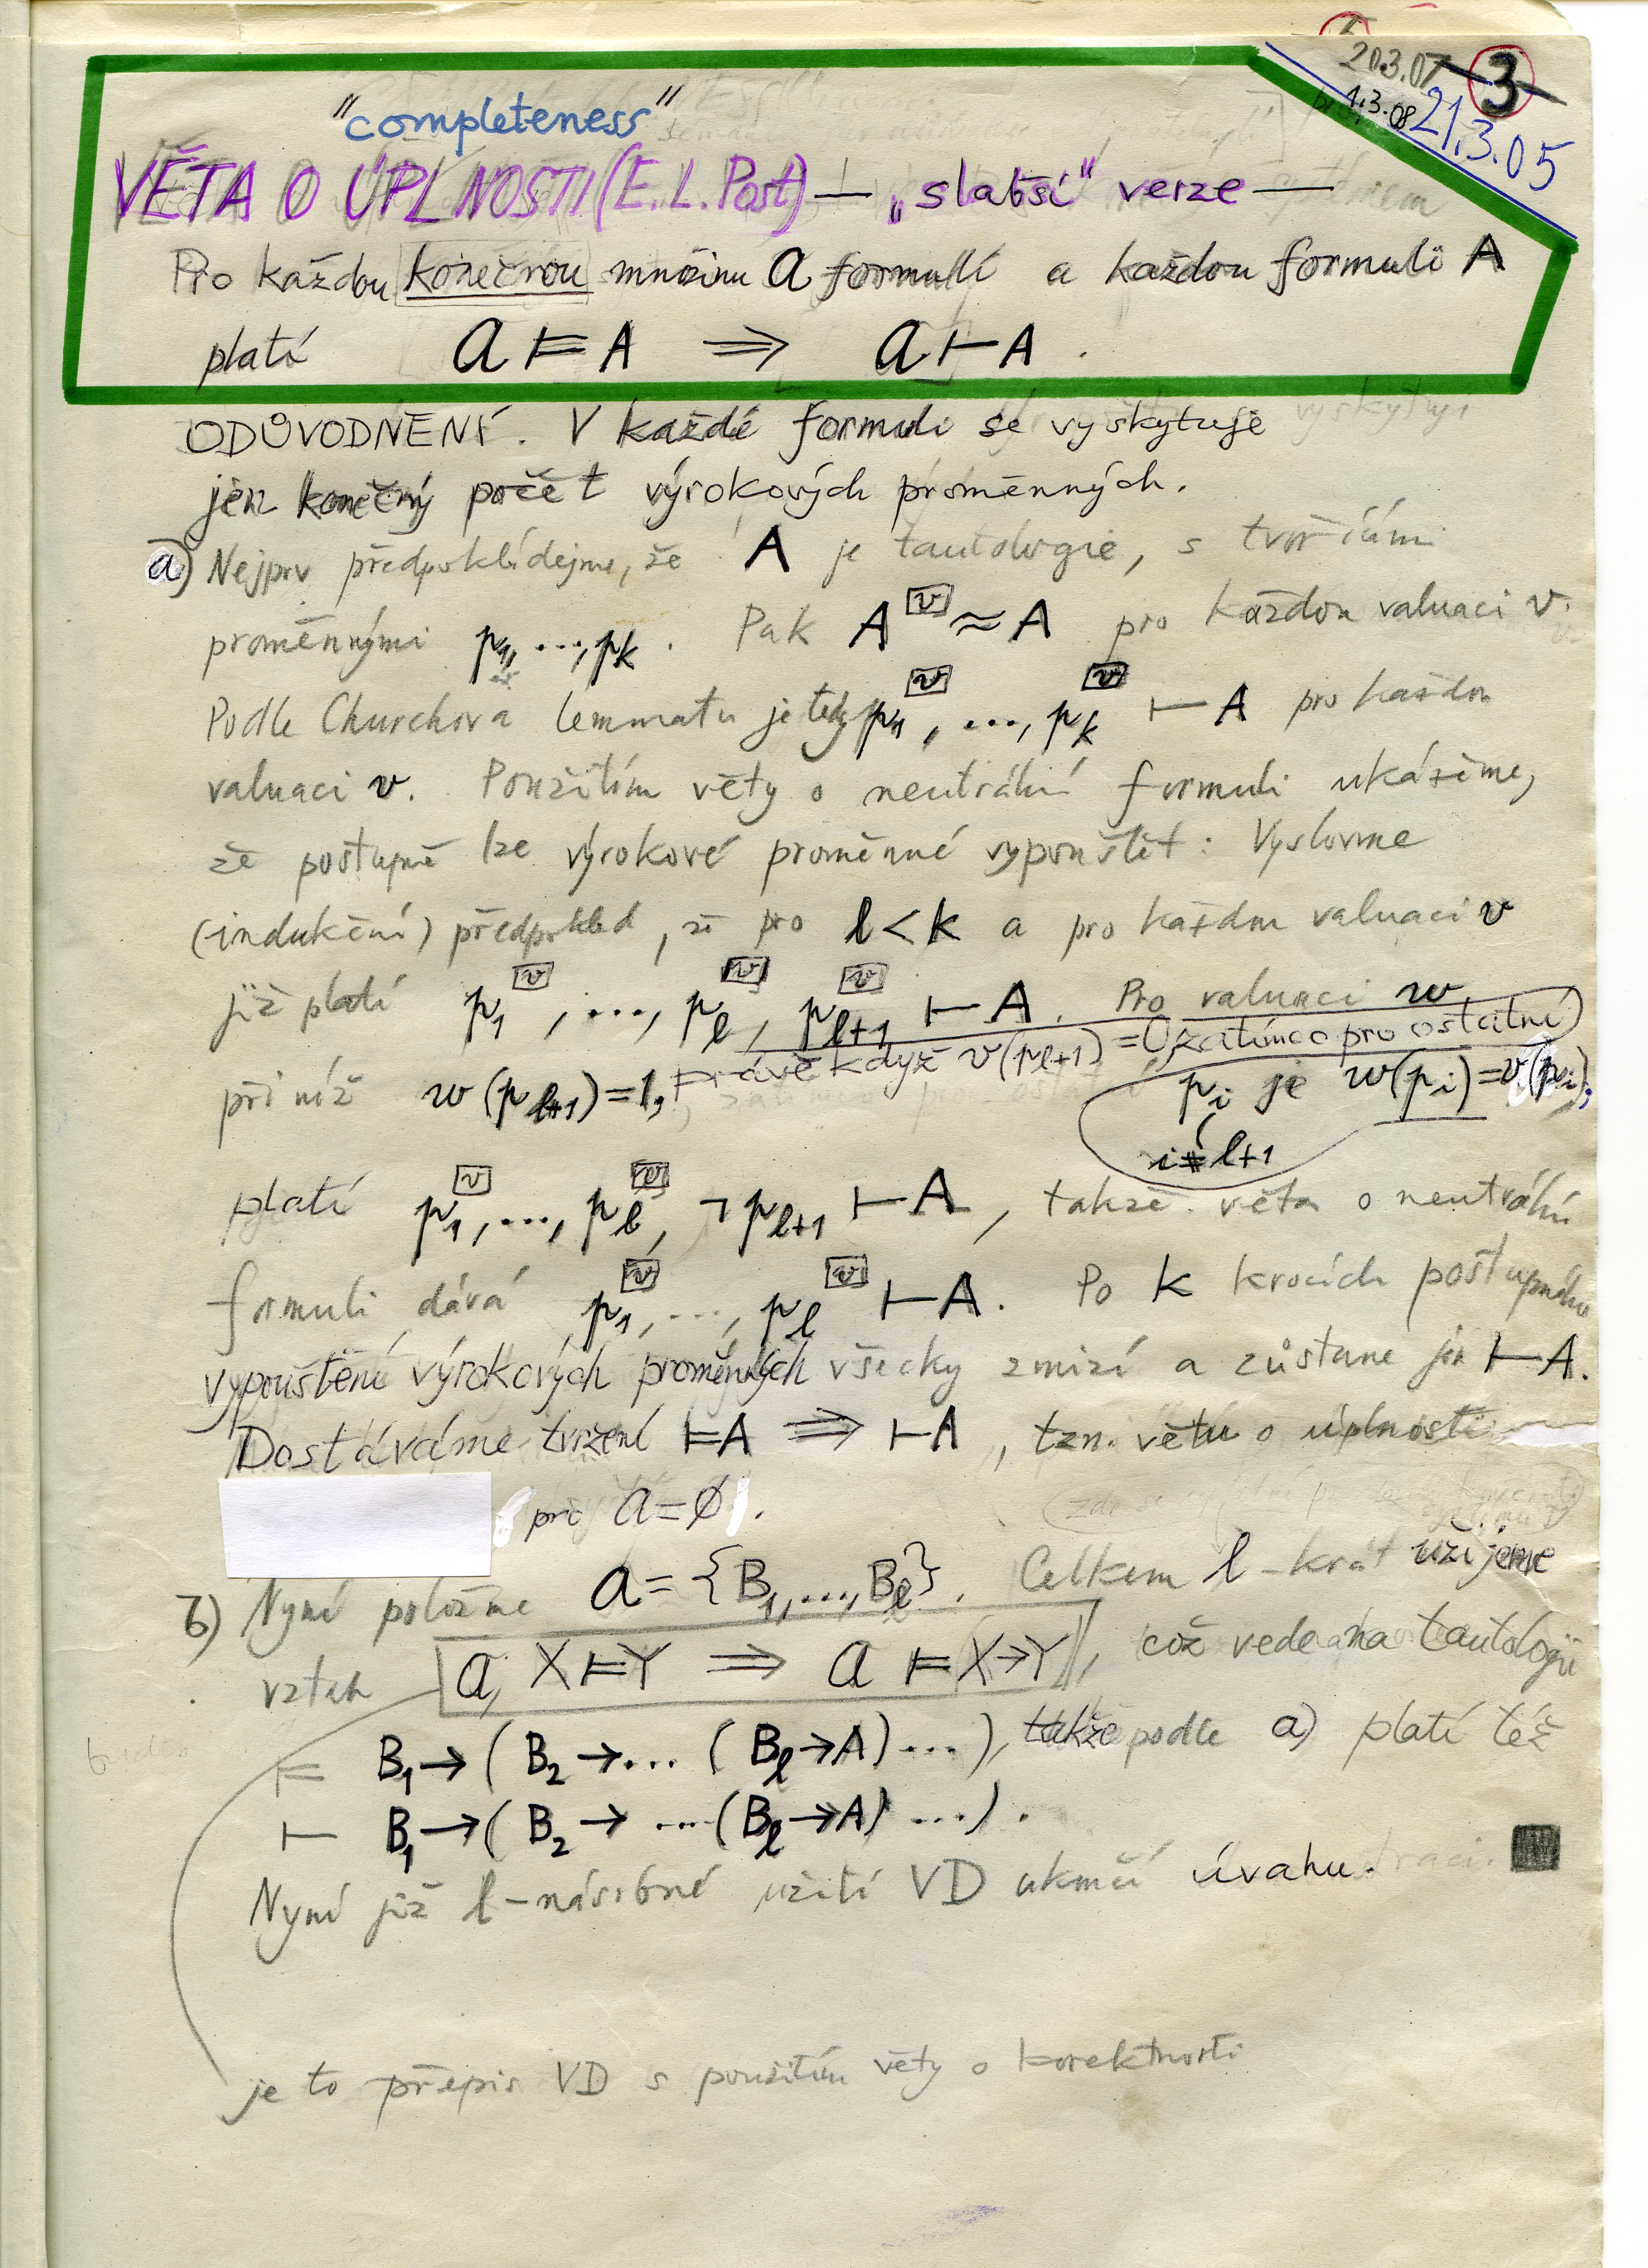 20.3.07 3
1.3.08 21.3.05
"completeness"
VĚTA O ÚPLNOSTI (E. L. Post) — „slabší" verze —
Pro každou konečnou množinu a formulí a každou formuli A
platí a ⊨ A ⟹ a ⊢ A .
ODŮVODNĚNÍ. V každé formuli se vyskytuje
jen konečný počet výrokových proměnných.
a) Nejprv předpokládejme, že A je tautologie, s tvořícími
proměnnými p₁, ..., pₖ . Pak A^[v] ≈ A pro každou valuaci v.
Podle Churchova lemmatu je tedy p₁^[v], ..., pₖ^[v] ⊢ A pro každou
valuaci v. Použitím věty o neutrální formuli ukážeme,
že postupně lze výrokové proměnné vypouštět: Vyslovme
(indukční) předpoklad, že pro l < k a pro každou valuaci v
již platí p₁^[v], ..., p_l^[v], p_{l+1}^[v] ⊢ A. Pro valuaci w,
při níž w(p_{l+1}) = 1, právě když v(p_{l+1}) = 0, zatímco pro ostatní
p_i je w(p_i) = v(p_i),
i ≠ l+1
platí p₁^[v], ..., p_l^[v], ¬p_{l+1} ⊢ A, takže věta o neutrální
formuli dává p₁^[v], ..., p_l^[v] ⊢ A. Po k krocích postupného
vypouštění výrokových proměnných všecky zmizí a zůstane jen ⊢ A.
Dostáváme tvrzení ⊨ A ⟹ ⊢ A, tzn. větu o úplnosti
pro a = ∅.
b) Nyní položme a = {B₁, ..., B_l}. Celkem l-krát užijeme
vztah a, X ⊨ Y ⟹ a ⊨ X → Y, což vede na tautologii
⊨ B₁ → (B₂ → ... (B_l → A) ...), takže podle a) platí též
⊢ B₁ → (B₂ → ... (B_l → A) ...).
Nyní již l-násobné užití VD ukončí úvahu. ■
je to přepis VD s použitím věty o korektnosti